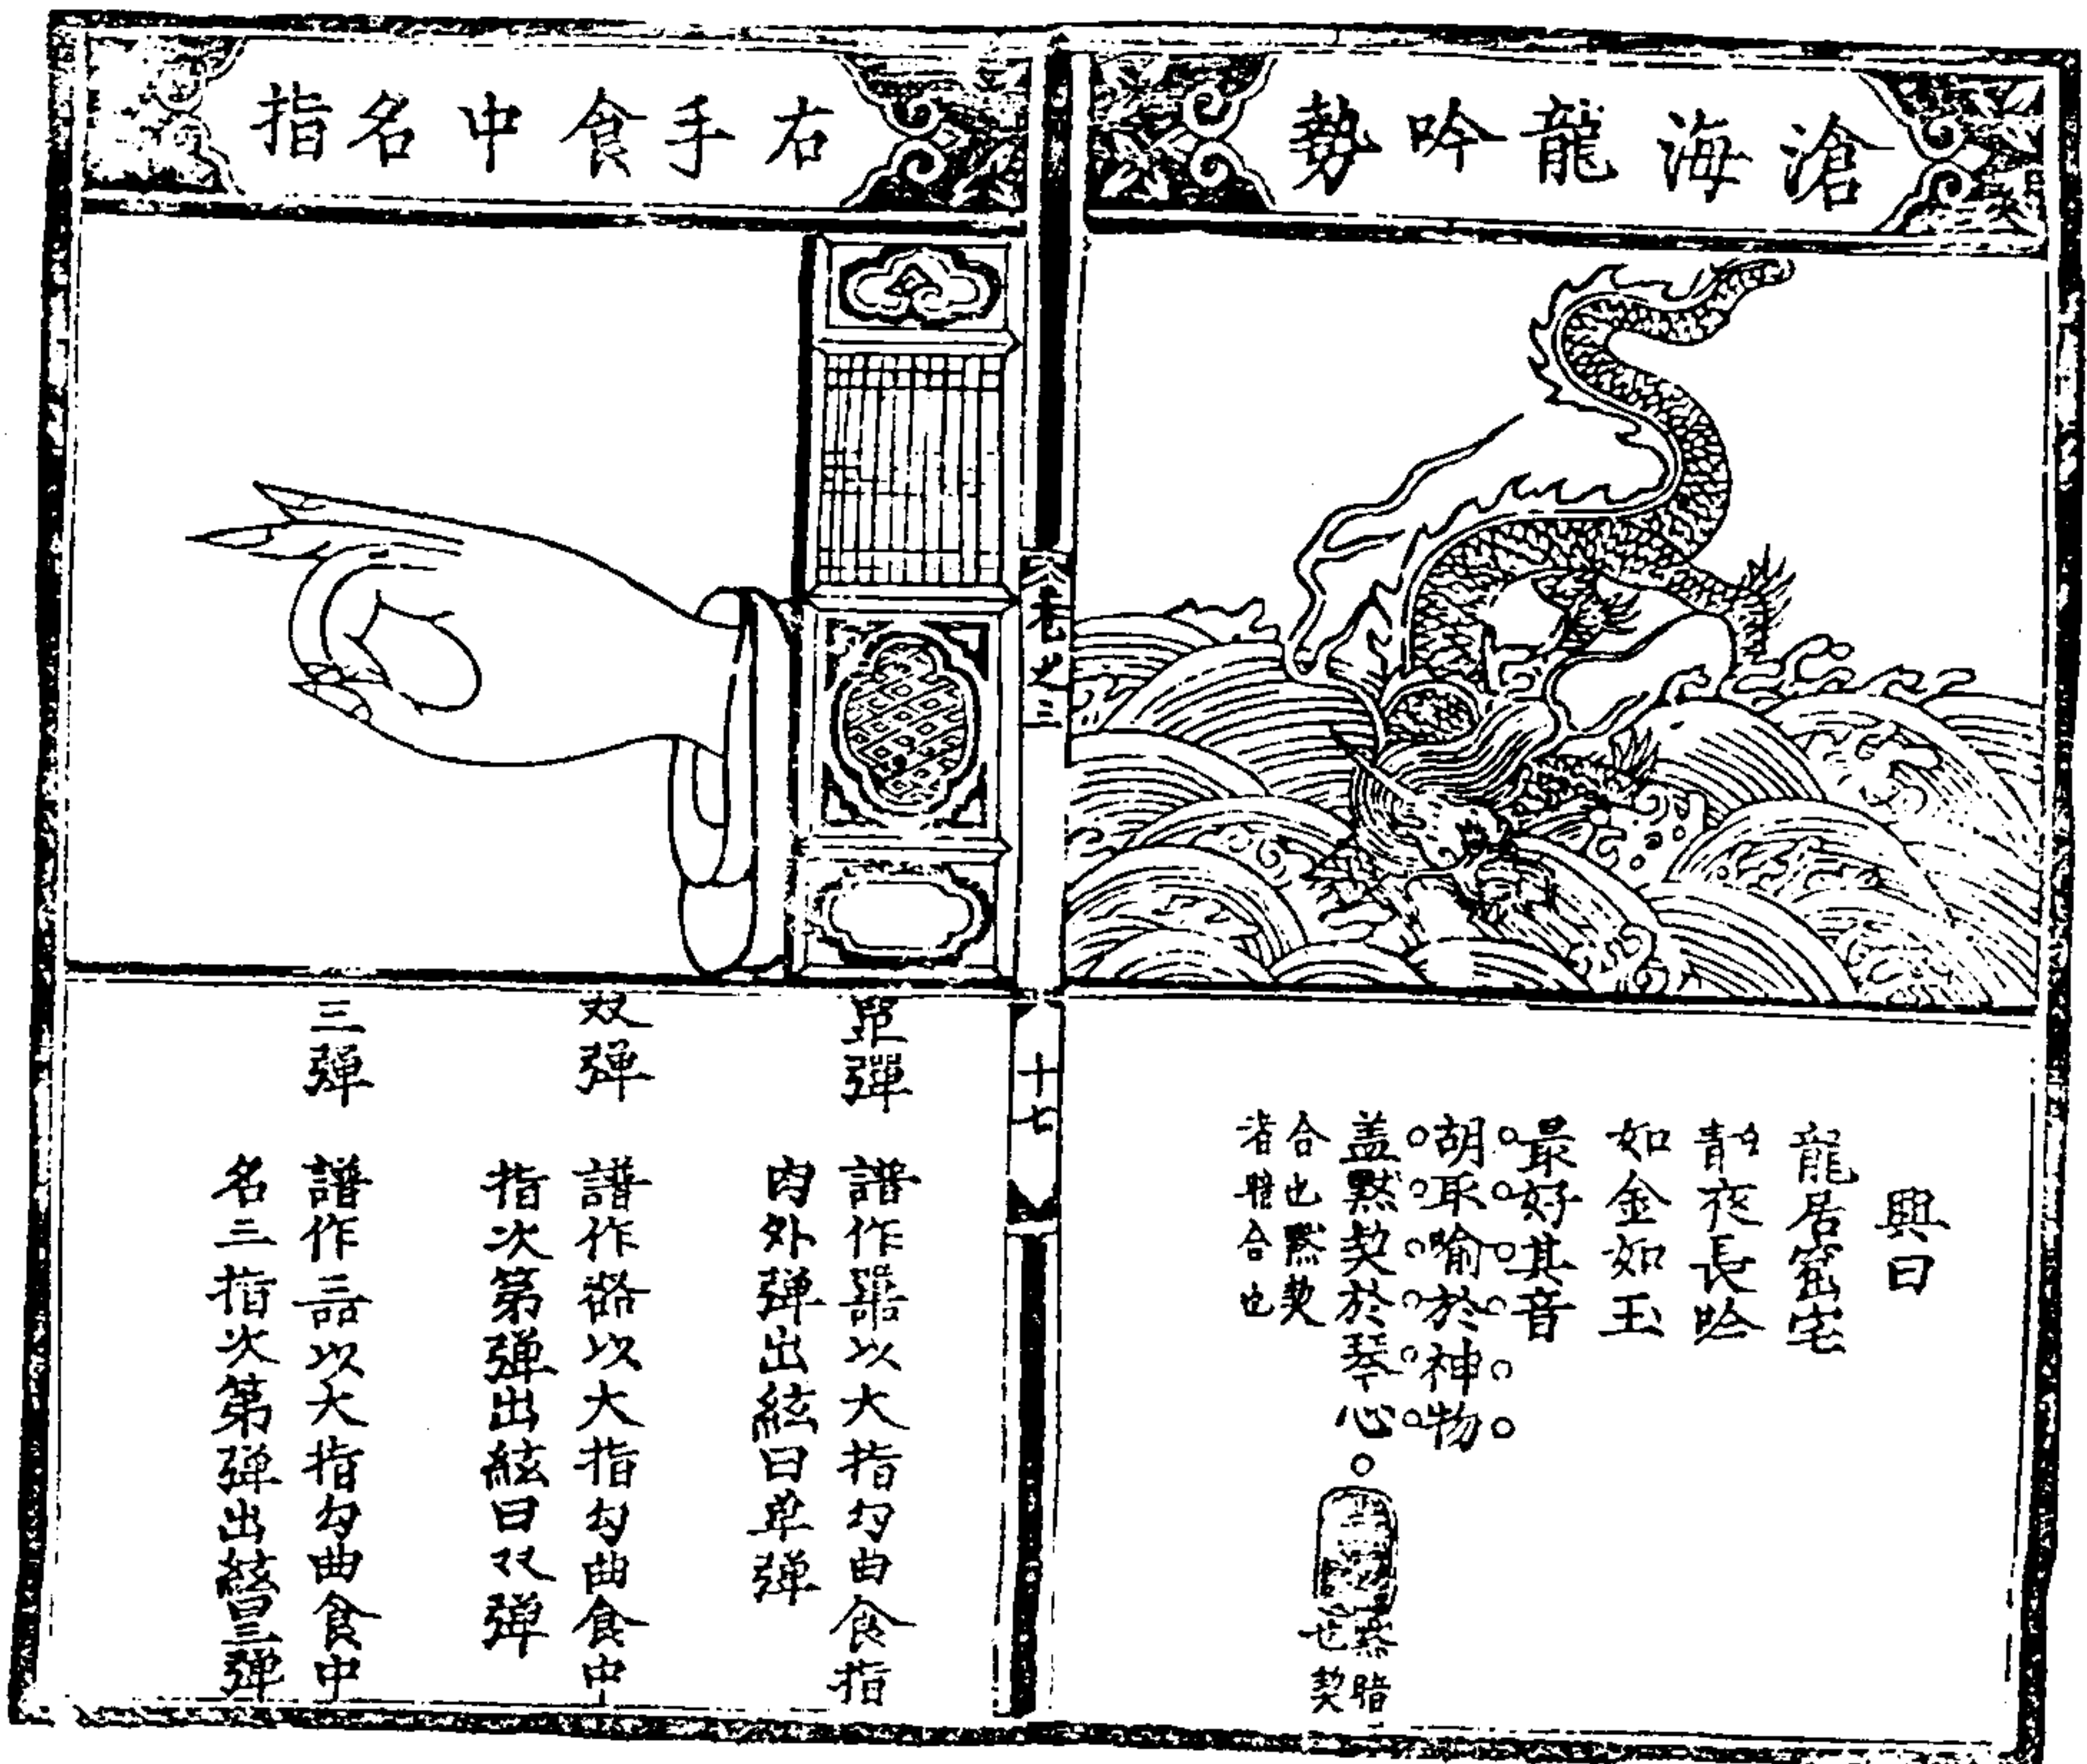 滄海龍吟勢
興曰
龍居窟宅
静夜長吟
如金如玉
最好其音
胡取喻於神物
盖黙契於琴心
黙暗
也契
合也黙契
者暗合也
卷之三
十七
右手食中名指
單彈
譜作以大指勾曲食指
肉外弹出絃曰单弹
双弹
譜作以大指勾曲食中
指次第弹出絃曰双弹
三弹
譜作以大指勾曲食中
名三指次第弹出絃曰三弹